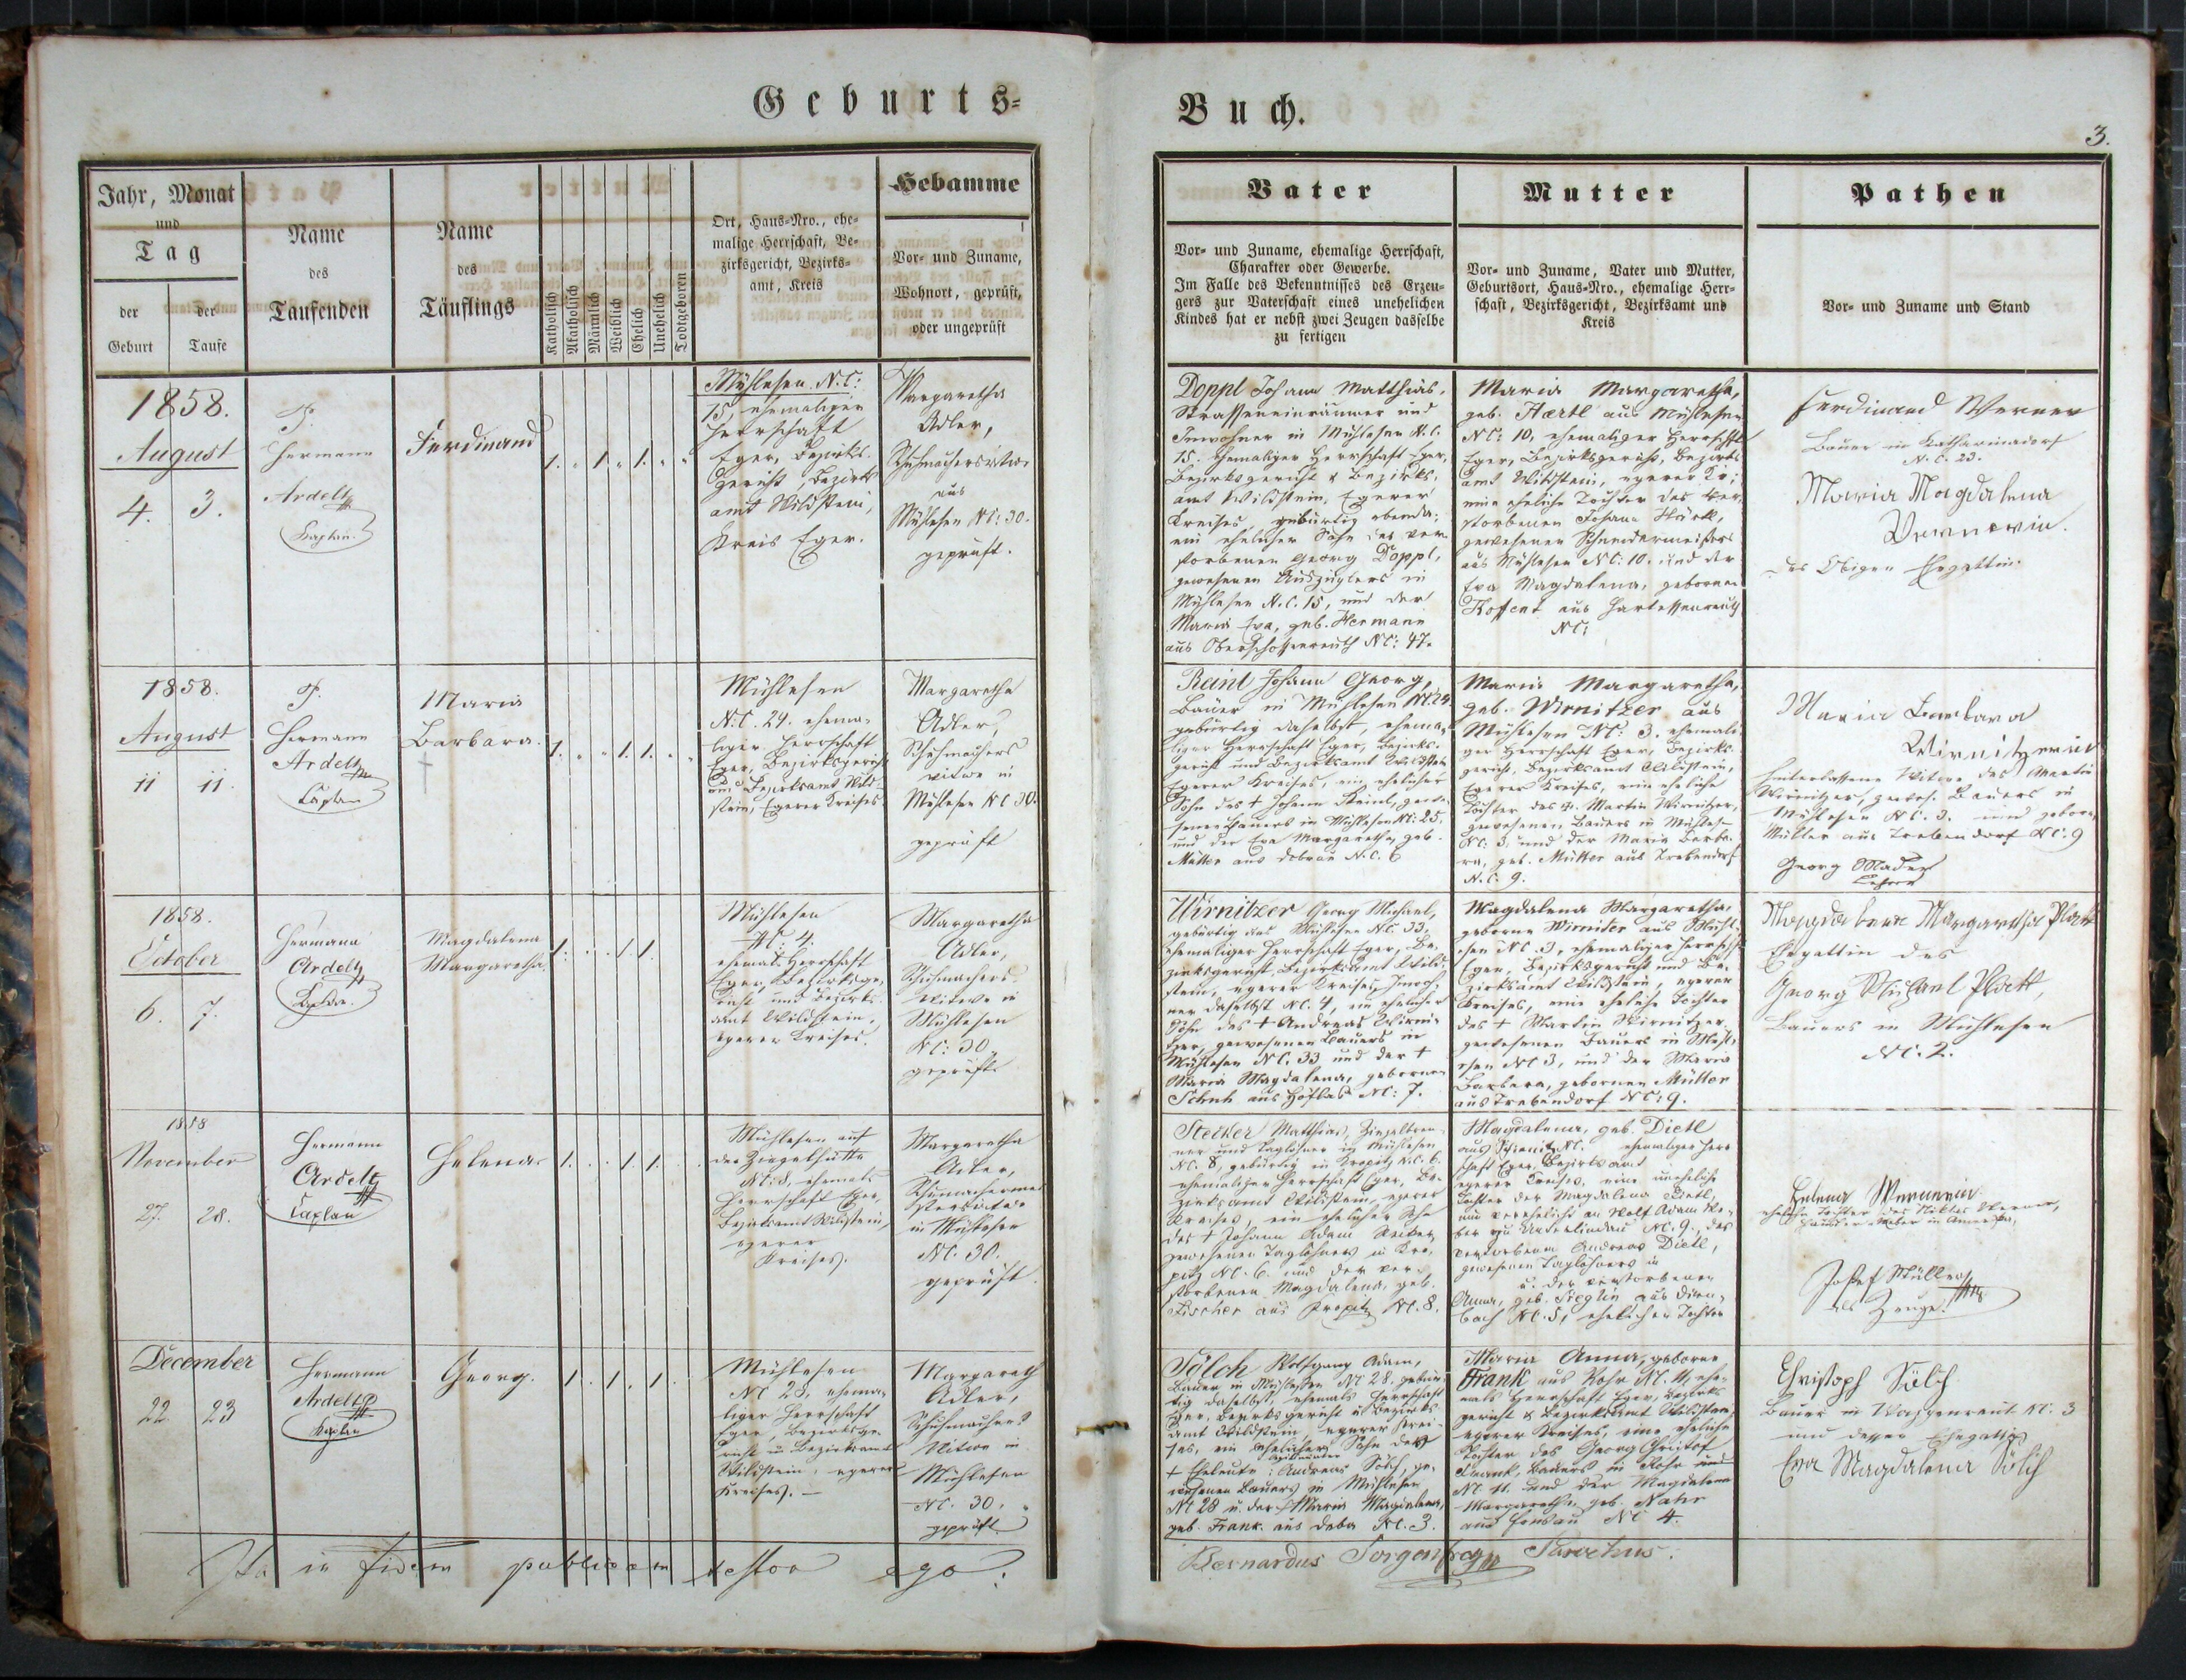 Geburts-
Buch.
3.
Jahr, Monat
und
Tag
der
Geburt
der
Taufe
Name
des
Taufenden
Name
des
Täuflings
Katholisch
Akatholisch
Männlich
Weiblich
Ehelich
Unehelich
Todtgeboren
Ort, Haus-Nro., ehe-
malige Herrschaft, Be-
zirksgericht, Bezirks-
amt, Kreis
Hebamme
Vor- und Zuname,
Wohnort, geprüft,
oder ungeprüft
Vater
Vor- und Zuname, ehemalige Herrschaft,
Charakter oder Gewerbe.
Im Falle des Bekenntnisses des Erzeu-
gers zur Vaterschaft eines unehelichen
Kindes hat er nebst zwei Zeugen dasselbe
zu fertigen
Mutter
Vor- und Zuname, Vater und Mutter,
Geburtsort, Haus-Nro., ehemalige Herr-
schaft, Bezirksgericht, Bezirksamt und
Kreis
Pathen
Vor- und Zuname und Stand
1858.
August
4. 3.
P.
Hermann
Ardelt
Kaplan
Ferdinand
1. 1. 1.
Mühlesen N.C:
15, ehemaliger
Herrschaft
Eger, Bezirks-
gericht, Bezirks
amt Wildstein,
Kreis Eger.
Margaretha
Adler,
Schuhmacherswitwe
aus
Mühlesen NC: 30.
geprüft.
Doppl Johann Matthias,
Strasseneinräumer und
Inwohner in Mühlesen N.C.
15. ehemaliger Herrschaft Eger,
Bezirksgericht & Bezirks-
amt Wildstein, Egerer
Kreises, gebürtig ebenda;
ein ehelicher Sohn des ver-
storbenen Georg Doppl,
gewesenen Auszüglers in
Mühlesen N.C. 15, und der
Maria Eva, geb. Hermann
aus Oberschossenreuth NC: 47.
Maria Margaretha,
geb. Haertl aus Mühlesen
NC: 10, ehemaliger Herrschft
Eger, Bezirksgericht, Bezirks
amt Wildstein, egerer Kr;
eine eheliche Tochter des ver-
storbenen Johann Härtl,
gewesenen Schneidermeisters
aus Mühlesen NC: 10. und der
Eva Magdalena, gebornen
aus Hartessenreuth
NC:
Ferdinand Werner
Bauer in Katharinadorf
N.C. 23.
Maria Magdalena
Wernerin.
des Obigen Ehgattin.
1858.
August
11 11.
P.
Hermann
Ardelt
Caplan
Maria
Barbara.
1. 1. 1.
Mühlesen
N.C. 24. ehema-
liger Herrschaft
Eger, Bezirksgericht
und Bezirksamt Wild-
stein, Egerer Kreises.
Margaretha
Adler,
Schuhmachers
witwe in
Mühlesen NC 30.
geprüft
Reinl Johann Georg,
Bauer in Mühlesen NC 24
gebürtig daselbst, ehema-
liger Herrschaft Eger, Bezirks-
gericht und Bezirksamt Wildstein
Egerer Kreises, ein ehelicher
Sohn des + Johann Reinl, gewe-
senen Bauers in Mühlesen NC: 25.
und der Eva Margaretha, geb.
Müller aus Dobrau N.C. 6
Maria Margaretha,
geb. Wirnitzer aus
Mühlesen NC: 3. ehemali-
ger Herrschaft Eger, Bezirks-
gericht, Bezirksamt Wildstein,
Egerer Kreises, eine eheliche
Tochter des + Martin Wirnitzer,
gewesenen Bauers in Mühlesen
NC: 3, und der Maria Barba-
ra, geb. Müller aus Trebendorf
N.C. 9.
Maria Barbara
Wirnitzerin
hinterlassene Witwe des Martin
Wirnitzer, gewes. Bauers in
Mühlesen NC. 3. und geborn.
Müller aus Trebendorf NC. 9
Georg Mader
Lehrer
1858.
October
6. 7.
Hermann
Ardelt
Kaplan.
Magdalena
Margaretha.
1. 1. 1.
Mühlesen
NC: 4.
ehemal. Herrschaft
Eger, Bezirksge-
richt und Bezirks-
amt Wildstein,
egerer Kreises.
Margaretha
Adler,
Schuhmachers-
Witwe in
Mühlesen
NC: 30
geprüft
Wirnitzer Georg Michael,
gebürtig aus Mühlesen NC. 33,
ehemaliger Herrschaft Eger, Be-
zirksgericht, Bezirksamt Wild-
stein, egerer Kreises, Inwoh-
ner daselbst NC. 4, ein ehelicher
Sohn des + Andreas Wirni-
tzer, gewesenen Bauers in
Mühlesen NC. 33 und der +
Maria Magdalena, gebornen
Schuh aus Höflas NC: 7.
Magdalena Margaretha,
geborne Wirnitzer aus Mühl-
esen NC. 3, ehemaliger Herrschft
Eger, Bezirksgericht und Be-
zirksamt Wildstein, egerer
Kreises, eine eheliche Tochter
des + Martin Wirnitzer,
gewesenen Bauers in Mühl-
esen NC 3, und der Maria
Barbara, gebornen Müller
aus Trebendorf NC: 9.
Magdalena Margaretha Plott
Ehegattin des
Georg Michael Plott,
Bauers in Mühlesen
NC. 2.
1858
November
27. 28.
Hermann
Ardelt
Caplan
Helena
1. 1. 1.
Mühlesen auf
der Ziegelhütte
NC: 8, ehemals
Herrschaft Eger,
Bezirksamt Wildstein,
egerer
Kreises.
Margaretha
Adler,
in Mühlesen
NC. 30.
geprüft.
Stecker Matthias, Ziegelbren-
ner und Taglöhner in Mühlesen
NC. 8, gebürtig in Kropitz N.C. 6.
ehemaliger Herrschaft Eger, Be-
zirksamt Wildstein, egerer
Kreises, ein ehelicher Sohn
des + Johann Adam Stecker,
gewesenen Taglöhners in Kro-
pitz NC. 6. und der ver-
storbenen Magdalena, geb.
Fischer aus Kropitz NC. 8.
Magdalena, geb. Dietl
ehemaliger Herr-
schaft Eger, Bezirksamt
egerer Kreises, eine uneheliche
Tochter der Magdalena Dietl,
verstorbenen Andreas Dietl,
gewesenen Taglöhners in
u. der verstorbenen
Anna, geb.
NC. 5, ehelichen Tochter
Helena Wernerin
eheliche Tochter des Niklas Werner,
Josef Müller
als Zeuge
December
22. 23
Hermann
Ardelt
Kaplan
Georg.
1. 1. 1.
Mühlesen
NC 28, ehema-
liger Herrschaft
Eger, Bezirksge-
richt u. Bezirksamt
Wildstein, egerer
Kreises.
Margareth
Adler,
Schuhmachers
Witwe in
Mühlesen
NC. 30.
geprüft
Sölch Wolfgang Adam,
Bauer in Mühlesen NC 28. gebür-
tig daselbst, ehemals Herrschaft
Eger, Bezirksgericht u. Bezirks-
amt Wildstein, egerer Krei-
ses, ein ehelicher Sohn der
+ Eheleute: Andreas Sölch, ge-
wesenen Bauers in Mühlesen
NC 28 u. der + Maria Magdalena,
geb. Frank aus Deba NC. 3.
Maria Anna, geborne
Frank aus Rohr NC. 11, ehe-
mals Herrschaft Eger, Bezirks-
gericht & Bezirksamt Wildstein,
egerer Kreises, eine eheliche
Tochter des Georg Christof
Frank, Bauers in Rohr
NC. 11. und der Magdalena
Margaretha geb. Nahr
NC 4.
Christoph Sölch
Bauer in Watzgenreut NC. 3
und dessen Ehegattin
Eva Magdalena Sölch
Ita in fidem publicam testor ego:
Bernardus Sorgenfrey Parochus.